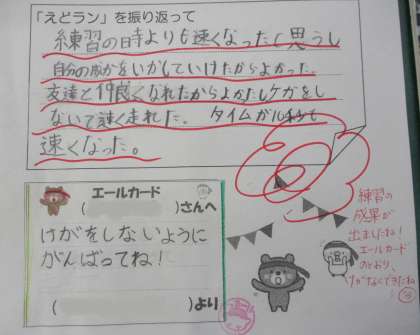 「えどラン」を振り返って
練習の時よりも速くなったと思うし
自分の成かをいかしていけたからよかった。
友達と仲良くなれたからよかたしケガをし
ないで速くまれた。タイムが10秒も
速くなった。
エールカード
( )さんへ
けがをしないように
がんばってね!
( )より
練習の
成果が
出ましたね!
エールカード
のとおり、
けがなくできたね